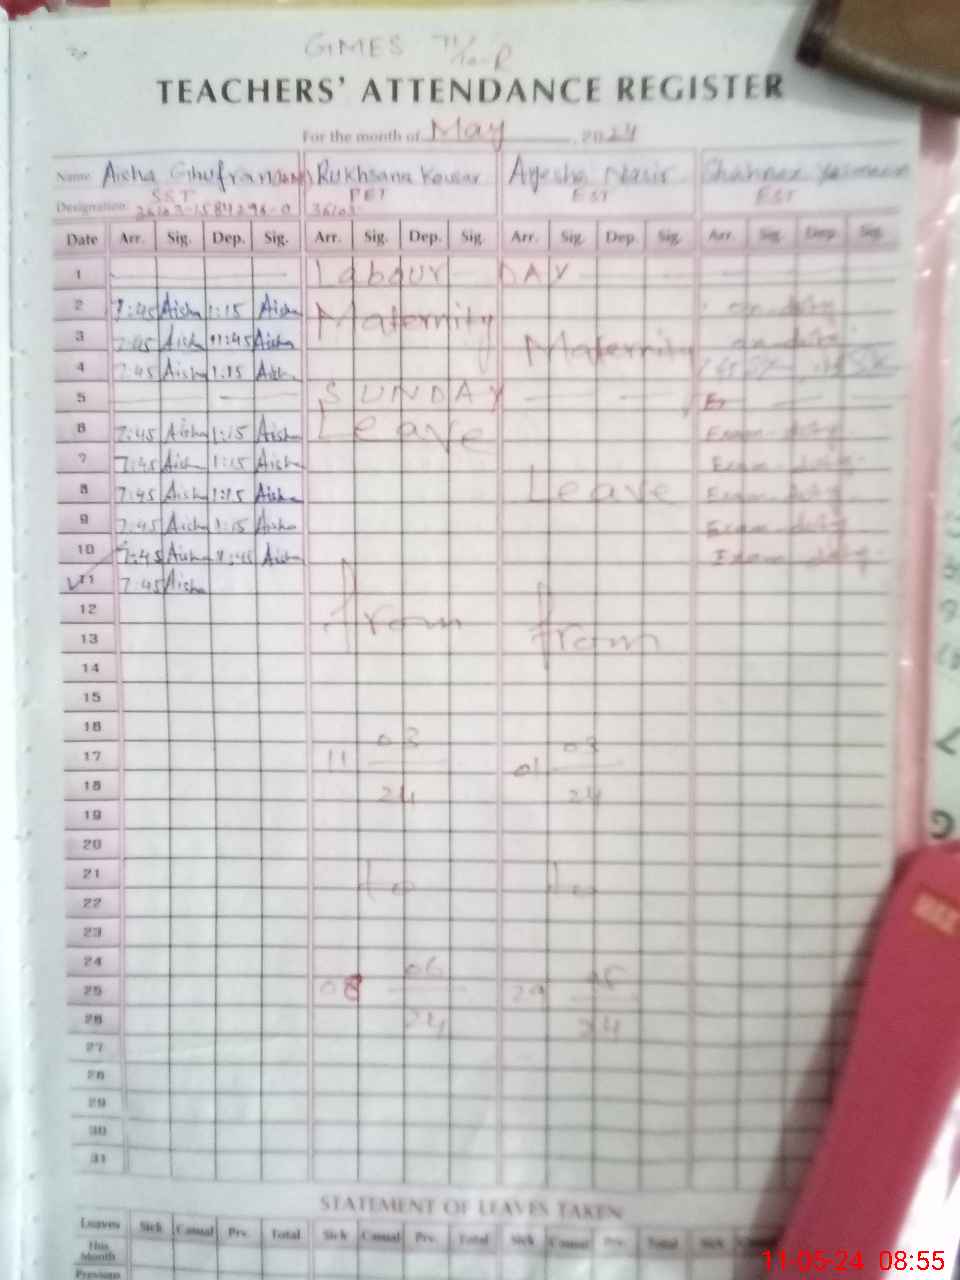 GMES 71/10-R
TEACHERS' ATTENDANCE REGISTER
For the month of May 2024
Name Aisha Ghufran Rukhsana Kousar Ayesha Nasir Shahnaz Yasmeen
SST PET EST EST
Designation 36103- 36103-
Date Arr. Sig. Dep. Sig. Arr. Sig. Dep. Sig. Arr. Sig. Dep. Sig. Arr. Sig. Dep. Sig.
1 Labour DAY
2 7:45 Aisha 1:15 Aisha Maternity on duty
3 7:45 Aisha 11:45 Aisha Maternity on duty
4 7:45 Aisha 1:15 Aisha
5 SUNDAY
6 7:45 Aisha 1:15 Aisha Leave Exam duty
7 7:45 Aisha 1:15 Aisha Exam duty
8 7:45 Aisha 1:15 Aisha Leave Exam duty
9 7:45 Aisha 1:15 Aisha Exam duty
10 7:45 Aisha 11:45 Aisha Exam duty
11 7:45 Aisha
12 from
13 from
14
15
16 03 03
17 11 01
18 24 24
19
20
21 to to
22
23
24 06
25 08
26 24 24
27
28
29
30
31
STATEMENT OF LEAVES TAKEN
Leaves Sick Casual Prv. Total Sick Casual Prv. Total Sick Casual Prv. Total Sick
This
Month
Previous
11-05-24 08:55